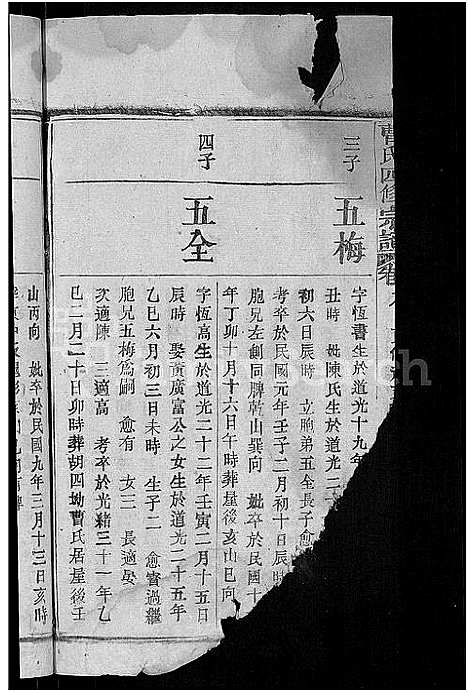 曹氏四修宗譜
三子
五梅
字恆書生於道光十九年
丑時 妣陳氏生於道光二
初六日辰時 立胞弟五全長子愈
考卒於民國元年壬子二月初十日辰時
胞兄左創同牌乾山巽向 妣卒於民國十
年丁卯十月十六日午時葬屋後亥山巳向
四子
五全
字恆高生於道光二十二年壬寅二月十五日
辰時 娶黃廣富公之女生於道光二十五年
乙巳六月初三日未時 生子二 愈實過繼
胞兄五梅爲嗣 愈有 女三 長適晏
次適陳 三適高 考卒於光緒三十一年乙
巳二月二十日卯時葬胡四坳曹氏居屋後壬
山丙向 妣卒於民國九年三月十三日亥時